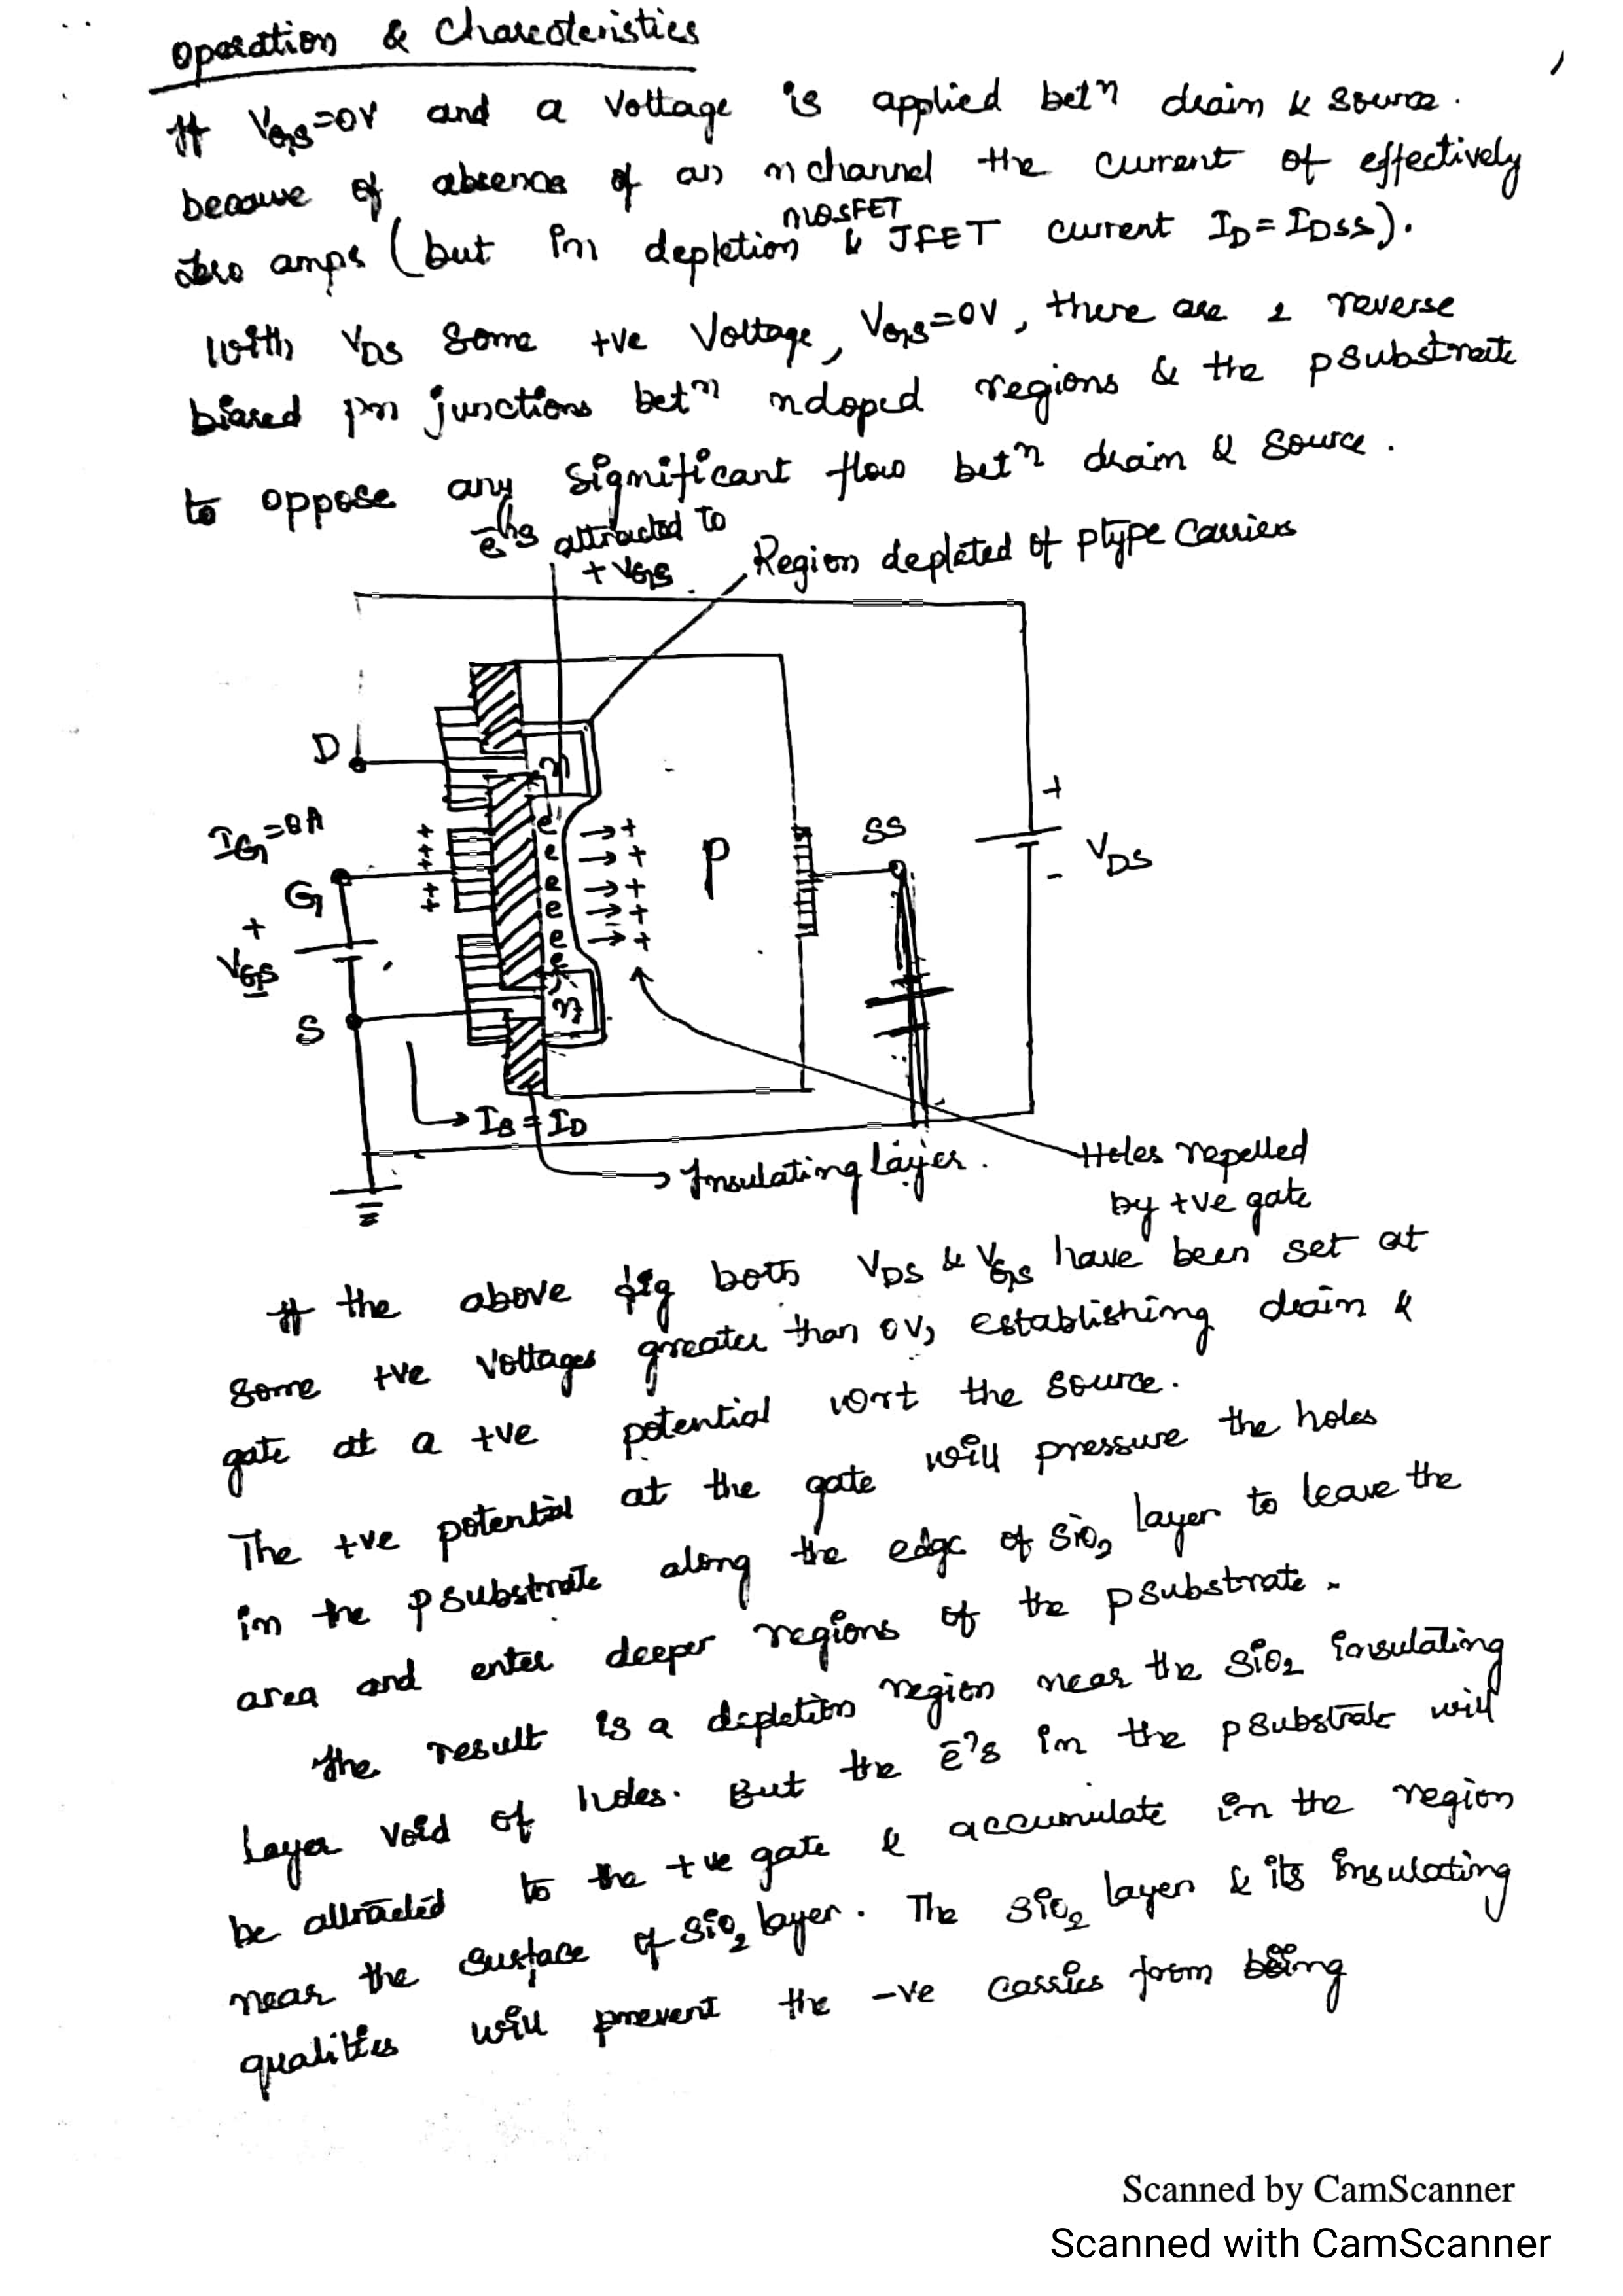 Operation & Charecteristics
If VGS=0V and a Voltage is applied betn drain & source.
because of absence of an n channel the current of effectively
MOSFET
Zero amps (but in depletion & JFET current ID=IDSS).
With VDS some +ve Voltage, VGS=0V, there are 2 reverse
biased pn junctions betn ndoped regions & the psubstrate
to oppose any significant flow betn drain & source.
attracted to
+VGS
Region depleted of ptype carriers
D
n
IG=0A
G
+
VGS
S
e
e
e
e
e
e
+
+
+
+
+
P
SS
+
VDS
-
n
IS=ID
Insulating Layer.
Holes repelled
by +ve gate
If the above fig both VDS & VGS have been set at
some +ve Voltages greater than 0V, establishing drain &
gate at a +ve potential wrt the source.
The +ve potential at the gate will pressure the holes
in the psubstrate along the edge of SiO2 layer to leave the
area and enter deeper regions of the psubstrate.
The result is a depletion region near the SiO2 insulating
Layer void of holes. But the e's in the psubstrate will
be attracted to the +ve gate & accumulate in the region
near the surface of SiO2 layer. The SiO2 layer & its insulating
qualities will prevent the -ve carries from being
Scanned by CamScanner
Scanned with CamScanner